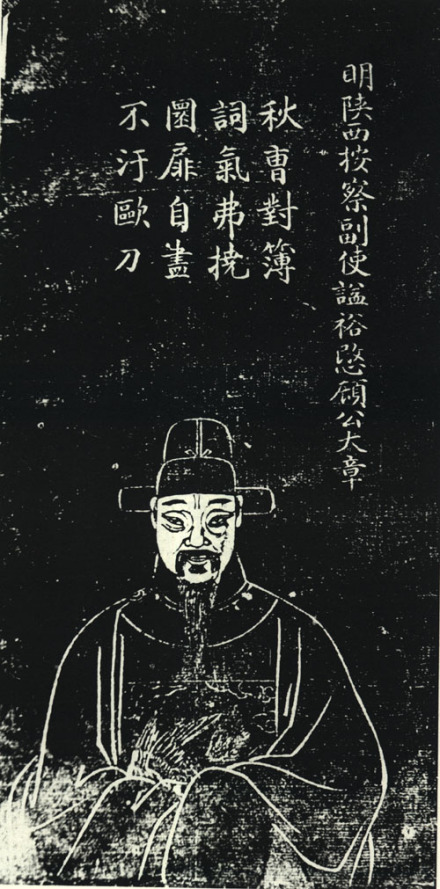 明陕西按察副使謚裕愍顧公大章
秋曹對簿
詞氣弗撓
圜扉自盡
不汙歐刀